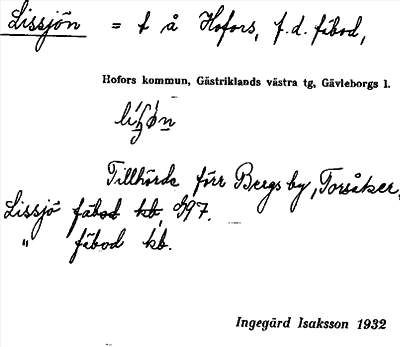 Lissjön = t å Hofors, f.d. fäbod,
Hofors kommun, Gästriklands västra tg, Gävleborgs l.
Tillhörde förr Bergs by, Torsåker.
Lissjö fäbod kb, 97.
" fäbod kb.
Ingegärd Isaksson 1932